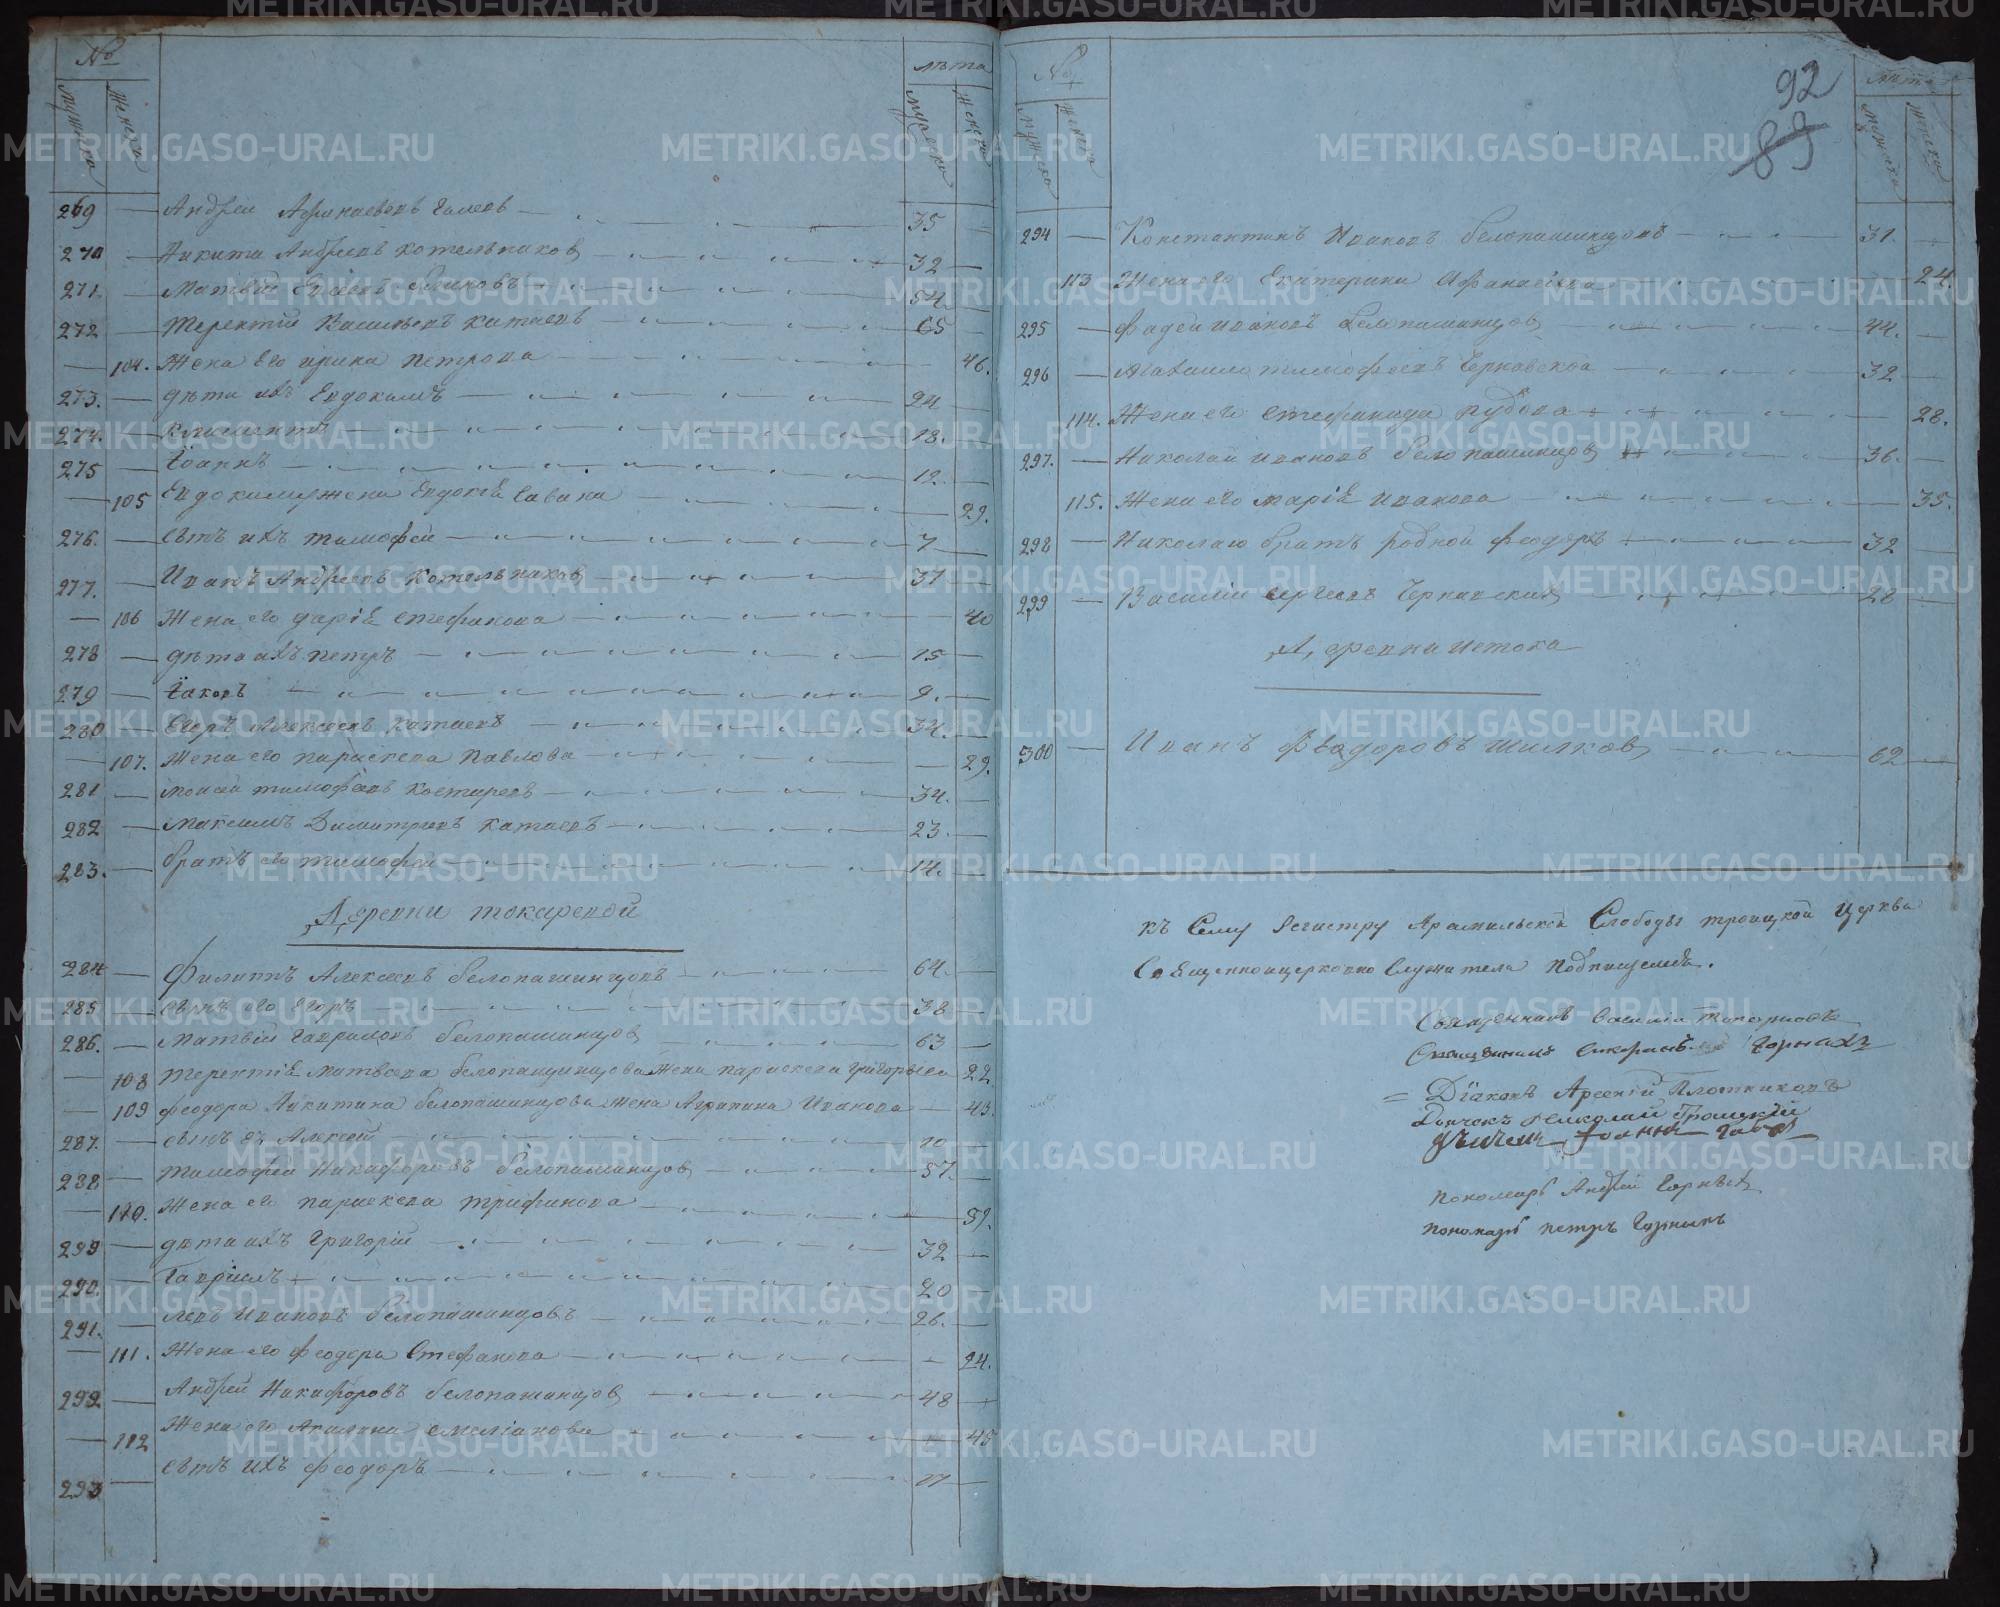 №
лѣта
мужеска
женска
мужеска
женска
269 Андрей Афанасьевъ 35
270 Никита Андреевъ Котельников 32
271 Матвѣй 54
272 Терентій Васильевъ Катаевъ 65
104. Жена его Ирина Петрова 46.
273. дѣти ихъ Евдокимъ 24
274. Климентъ 18.
275 Іоаннъ 12.
105 Евдокима жена Евдокія Савина 29.
276. сынъ ихъ Тимофей 7
277. Иванъ Андреевъ Котельников 37
106 Жена его Дарія Стефанова 40
278 дѣти ихъ Петръ 15
279 Іаковъ 9.
280 Егоръ Алексеевъ Катаевъ 34.
107. Жена его Параскева Павлова 29.
281 Моисей Тимофеевъ Костаревъ 34.
282 Максимъ Димитриевъ Катаевъ 23.
283. братъ его Тимофей 14.
Деревни Токаревой
284 Филипъ Алексеевъ Белопашинцовъ 64.
285. сынъ его Егоръ 38
286. Матвѣй Гавриловъ Белопашинцов 63
108 Терентія Матвѣева Белопашинцова жена Параскева Григорьева 22.
109 Феодора Никитина Белопашинцова жена Агрипина Иванова 43.
287. сынъ Алексей 10
288 Тимофей Никифоровъ Белопашинцов 57.
110. Жена его Параскева Трифонова 59.
289 дѣти ихъ Григорій 32
290. Гавріилъ 20
291. Левъ Ивановъ Белопашинцовъ 26.
111. Жена его Феодора Стефанова 24.
292 Андрей Никифоровъ Белопашинцов 48
112 Жена его Акилина Емеліанова 45
293 сынъ ихъ Феодоръ 17
№
92
89
лѣта
мужеска
женска
мужеска
женска
294 Константинъ Ивановъ Белопашинцовъ 31.
113 Жена его Екатерина Афанасіева 24.
295 Фадей Ивановъ Белопашинцов 44.
296 Тимофеевъ Чернавской 32
114. Жена его Стефанида 28.
297. Николай Ивановъ Белопашинцов 36.
115. Жена его Марія Иванова 35.
298 Николаю братъ родной Феодоръ 32
299 Василій Сергеевъ 28
Деревни Истока
300 Иванъ Феодоровъ Шилков 62
Къ Сему Регистру Арамильской Слободы Троицкой Церкви
Священноицерковно Служители Подписуемся.
Священникъ Василій Топорковъ
Священникъ Стефанъ
Діаконъ Арсений Плотниковъ
Дьячекъ Николай Троицкій
Дьячекъ Іоаннъ
Пономарь Андрей
Пономарь Петръ